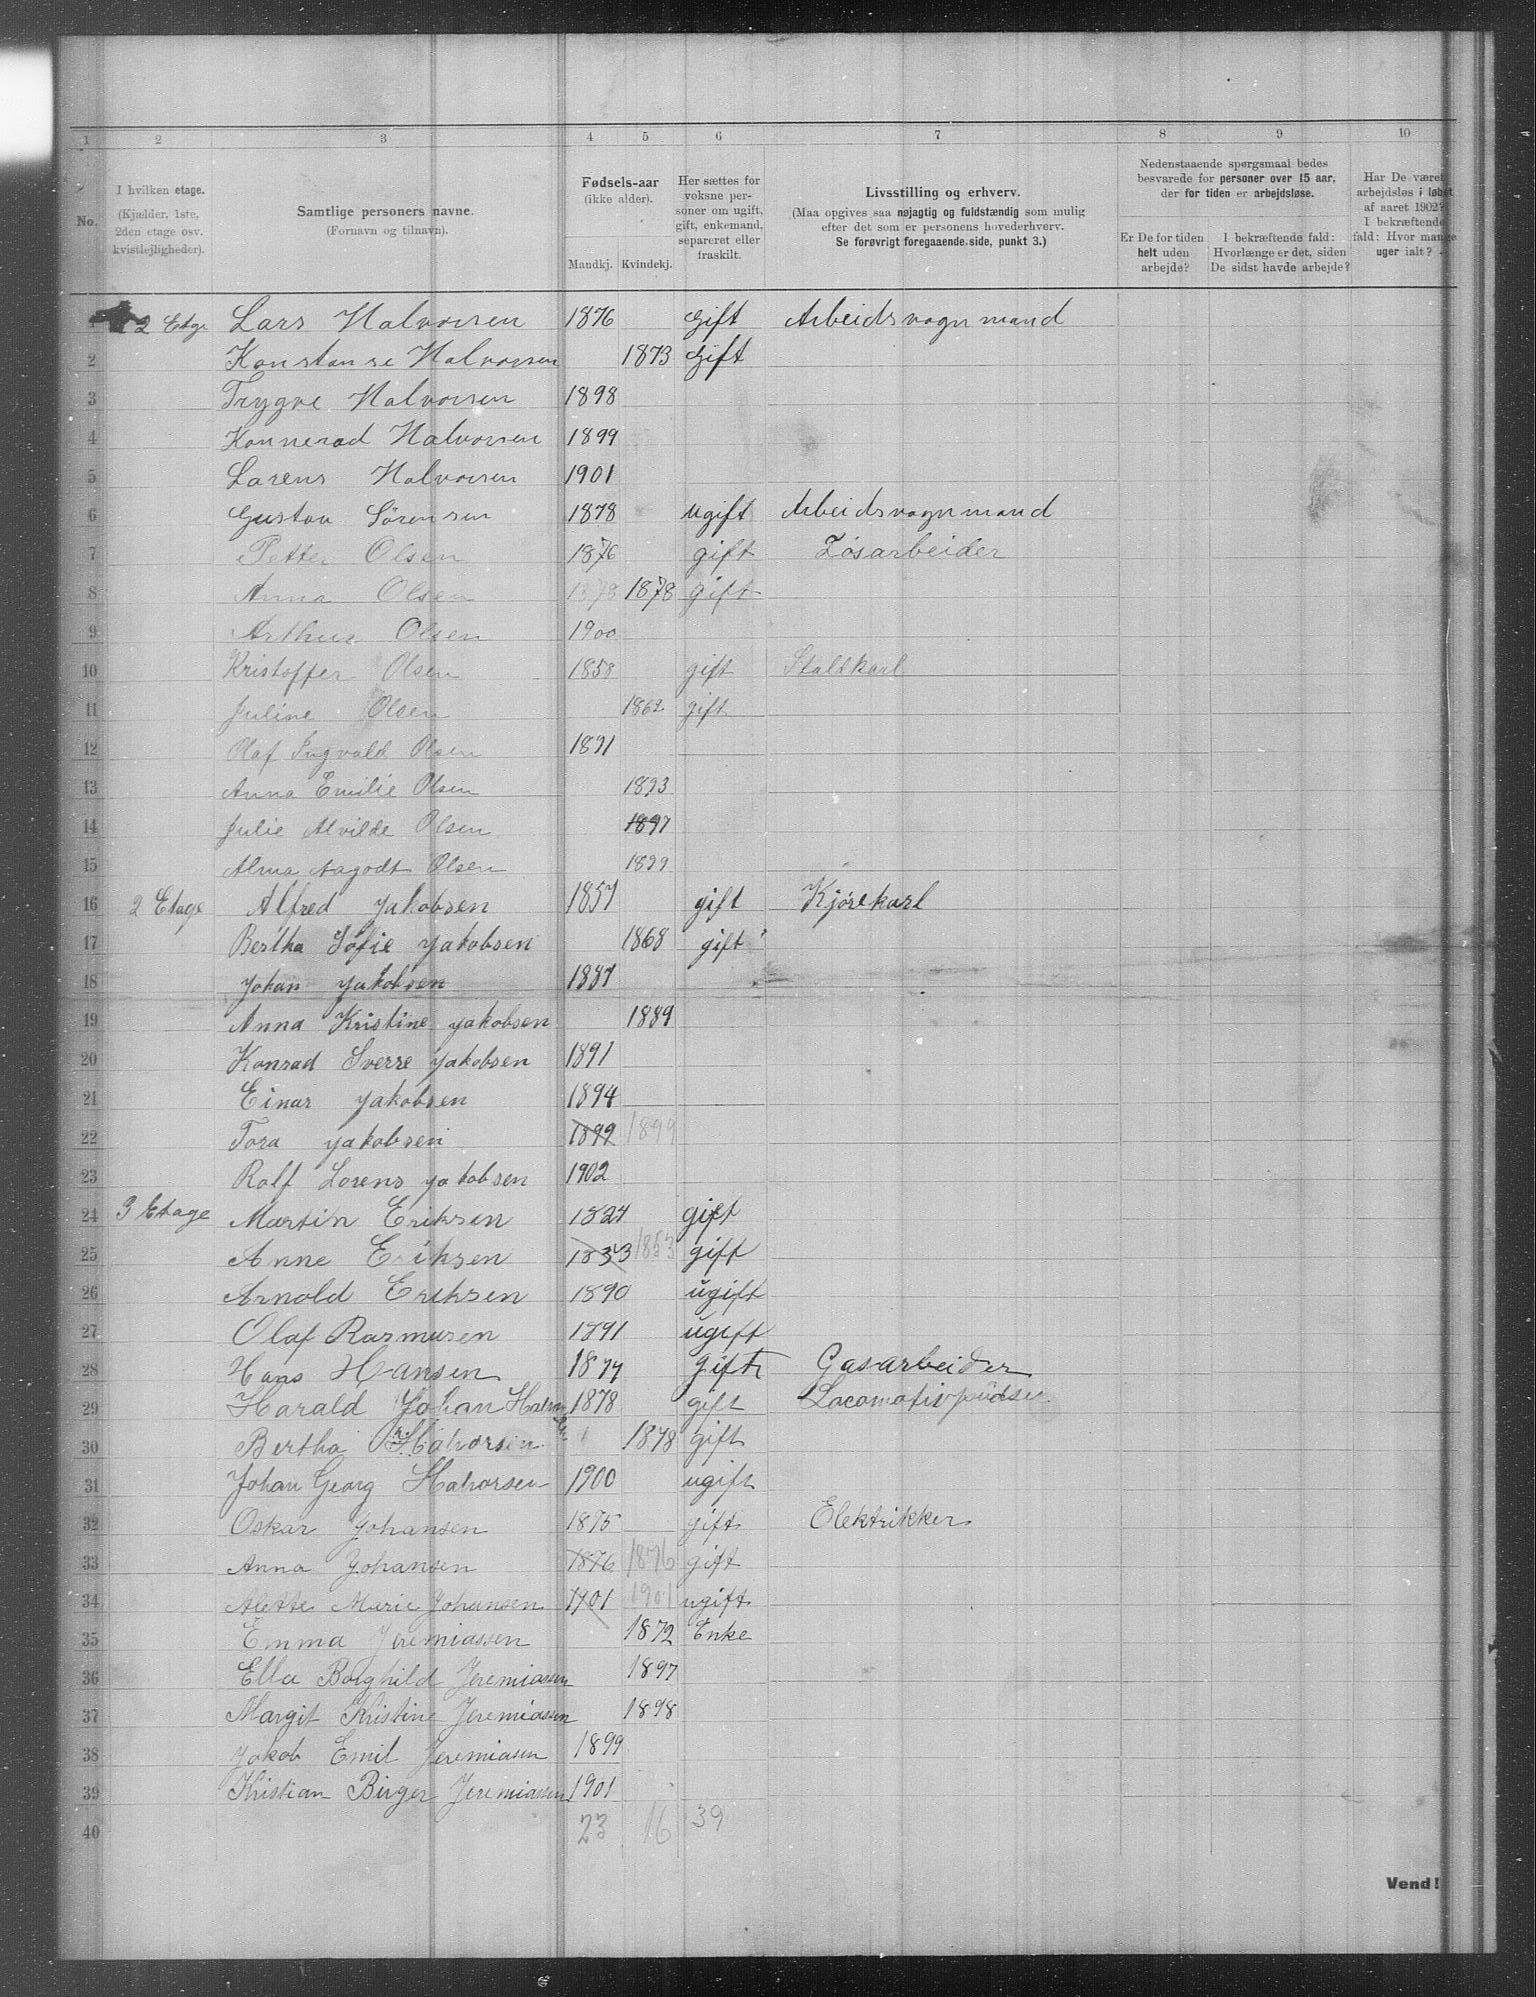 1 2 3 4 5 6 7 8 9 10
No.
I hvilken etage.
(Kjælder, 1ste,
2den etage osv.
kvistlejligheder).
Samtlige personers navne.
(Fornavn og tilnavn).
Fødsels-aar
(ikke alder).
Mandkj. Kvindekj.
Her sættes for
voksne per-
soner om ugift,
gift, enkemand,
separeret eller
fraskilt.
Livsstilling og erhverv.
(Maa opgives saa nøjagtig og fuldstændig som mulig
efter det som er personens hovederhverv.
Se forøvrigt foregaaende side, punkt 3.)
Nedenstaaende spørgsmaal bedes
besvarede for personer over 15 aar,
der for tiden er arbejdsløse.
Er De for tiden
helt uden
arbejde?
I bekræftende fald:
Hvorlænge er det, siden
De sidst havde arbejde?
Har De været
arbejdsløs i løbet
af aaret 1902?
I bekræftende
fald: Hvor mange
uger ialt?
1 2 Etge Lars Halvorsen 1876 Gift Arbeidsvognmand
2 Konstanse Halvorsen 1873 Gift
3 Trygve Halvorsen 1898
4 Konnerad Halvorsen 1899
5 Lorens Halvorsen 1901
6 Gustav Sörensen 1878 Ugift Arbeidsvognmand
7 Petter Olsen 1876 gift Løsarbeider
8 Anna Olsen 1878 1878 gift
9 Arthur Olsen 1900
10 Kristoffer Olsen 1858 gift Staldkarl
11 Juline Olsen 1862 gift
12 Olaf Ingvald Olsen 1891
13 Anna Emilie Olsen 1893
14 Julie Alvilde Olsen 1897
15 Alma Aagodt Olsen 1899
16 2 Etage Alfred Jakobsen 1857 gift Kjørekarl
17 Bertha Sofie Jakobsen 1868 gift
18 Johan Jakobsen 1887
19 Anna Kristine Jakobsen 1889
20 Konrad Sverre Jakobsen 1891
21 Einar Jakobsen 1894
22 Tora Jakobsen 1899 1899
23 Rolf Lorens Jakobsen 1902
24 3 Etage Martin Eriksen 1824 gift
25 Anne Eriksen 1833 1853 gift
26 Arnold Eriksen 1890 ugift
27 Olaf Rasmusen 1891 ugift
28 Hans Hansen 1877 gift Gasarbeider
29 Harald Johan 1878 gift Locomotivpudser
30 Bertha Halvorsen 1878 gift
31 Johan Georg Halvorsen 1900 ugift
32 Oskar Johansen 1875 gift Elektrikker
33 Anna Johansen 1876 1876 gift
34 Alette Marie Johansen 1901 1901 ugift
35 Emma Jeremiassen 1872 Enke
36 Ella Borghild Jeremiassen 1897
37 Margit Kristine Jeremiassen 1898
38 Jakob Emil Jeremiasen 1899
39 Kristian Birger Jeremiassen 1901
40 23 16 39
Vend!